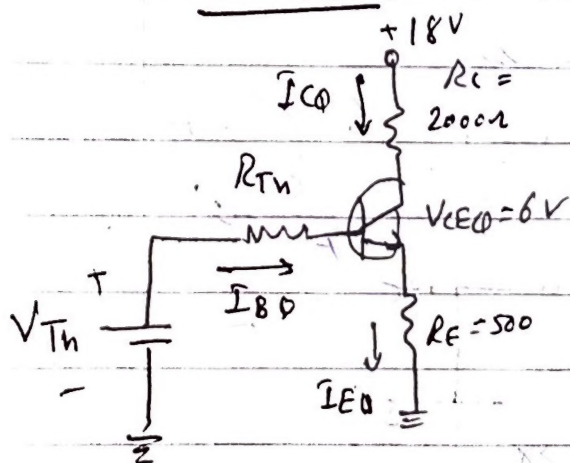 +18V
ICQ
RC =
2000Ω
RTh
VCEQ=6V
IBQ
+
VTh
-
RE=500
IEQ